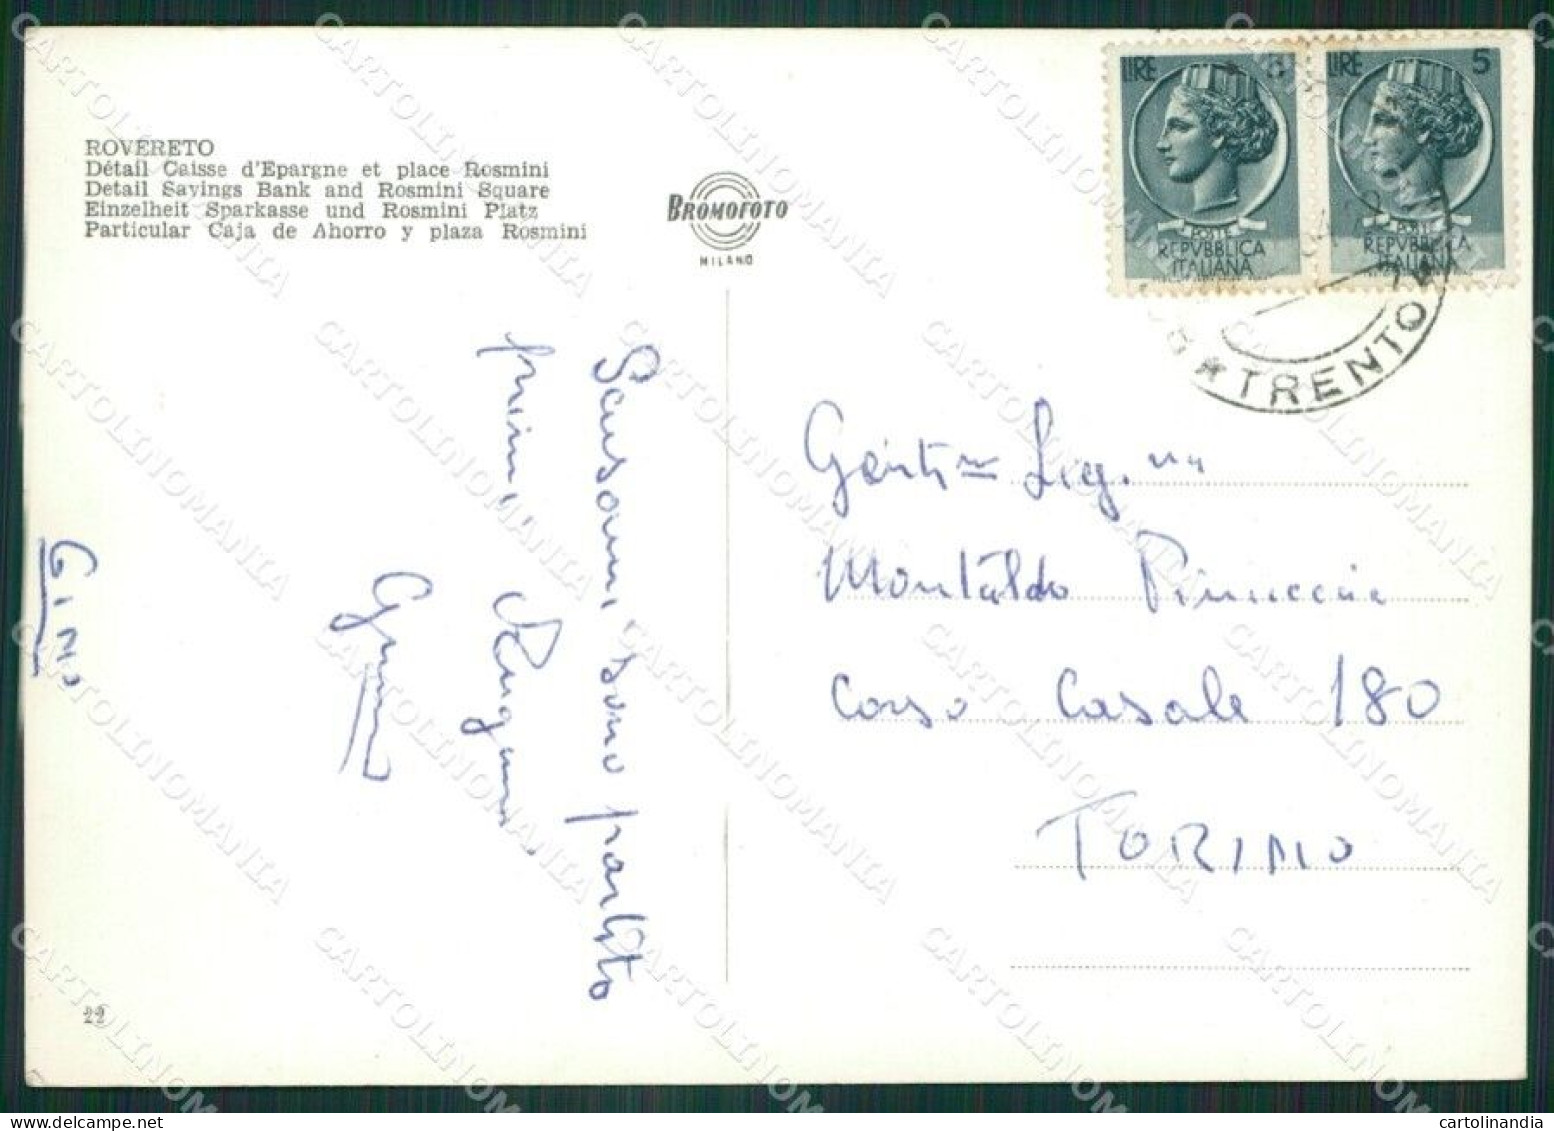 ROVERETO
Détail Caisse d'Epargne et place Rosmini
Detail Savings Bank and Rosmini Square
Einzelheit Sparkasse und Rosmini Platz
Particular Caja de Ahorro y plaza Rosmini
BROMOFOTO
MILANO
LIRE 5
POSTE
REPVBBLICA
ITALIANA
LIRE 5
POSTE
REPVBBLICA
ITALIANA
TRENTO
Scusami, sono partito
prima,
GINO
Sig.na
Montaldo Pinuccia
Corso Casale 180
TORINO
22
CARTOLINOMANIA
cartolinandia